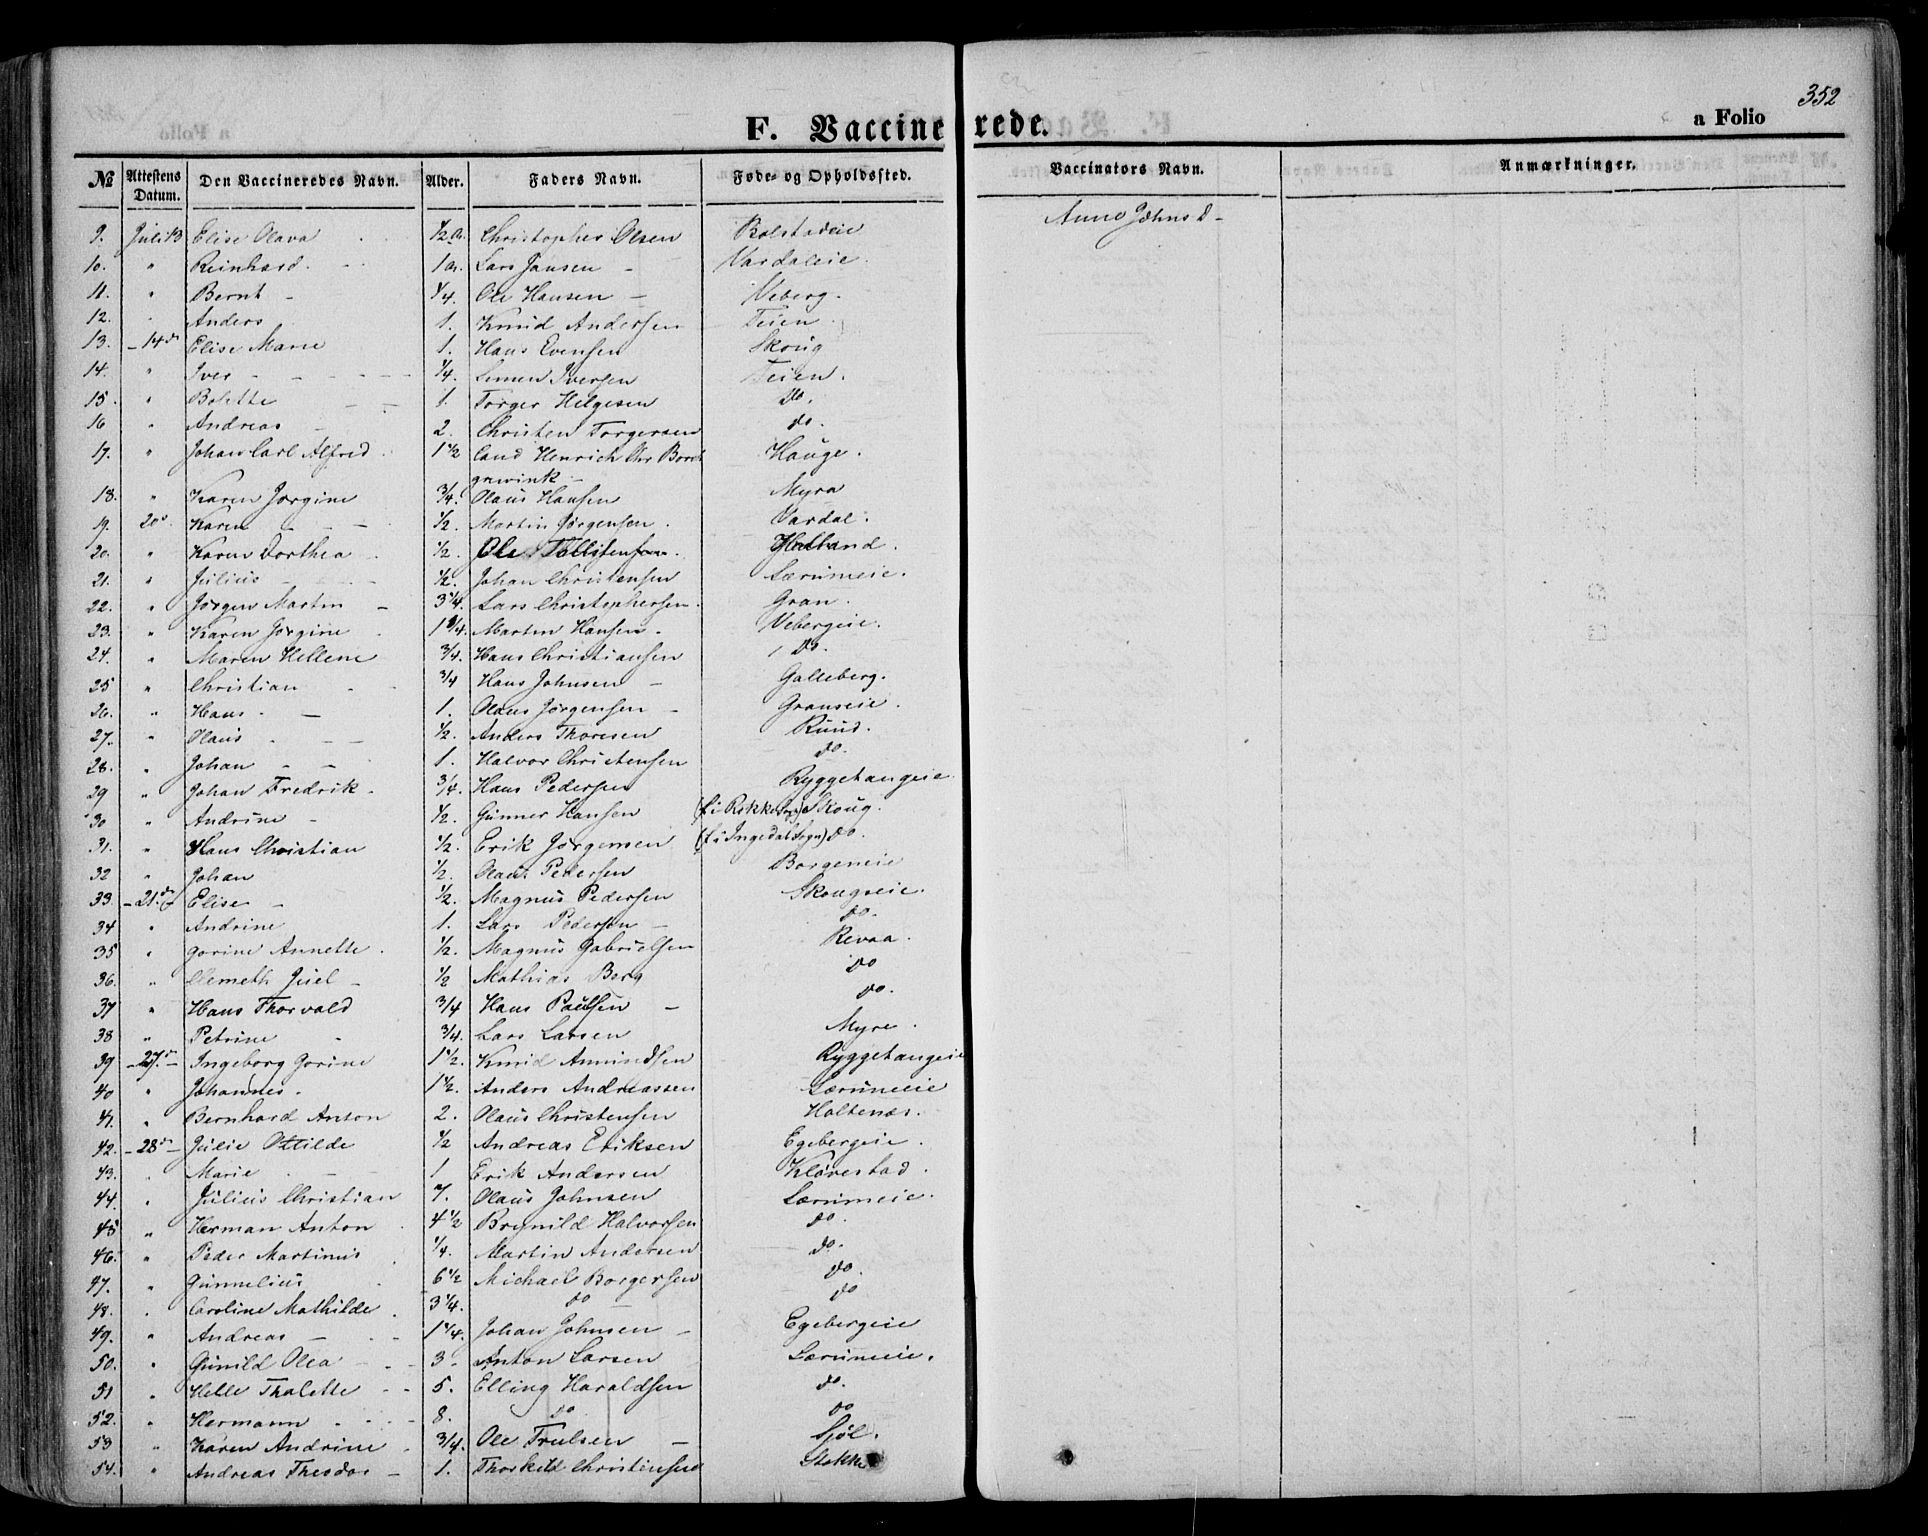 352
F. Vaccinerede. a Folio
№ Attestens Datum. Den Vaccineredes Navn. Alder. Faders Navn. Føde- og Opholdssted. Vaccinators Navn. Anmærkninger.
9. Juli 13 Elise Olava 1/2 a. Christopher Olsen Bolstadeie Anne Johnsd
10. " Reinhard. 1 a. Lars Jansen Vardaleie.
11. " Bernt 1/4. Ole Hansen Veberg.
12. Anders 1. Knud Andersen Teien
13. 14de Elise Marie 1. Hans Evensen Skoug
14. " Iver 1/4. Simen Iversen Teien.
15. " Bolette 1. Torger Helgesen Do.
16 " Andreas 2. Christen Torgersen do.
17. " Johan Carl Alfred 1 1/2 Cand Henrich Chr Borch
grevink Hauge.
18. " Karen Jørgine 3/4. Olaus Hansen Myra
19. 20de Karen 1/2. Martin Jørgensen. Vardal.
20. " Karen Dorthea 1/2. Ole Tollefsen. Halland.
21. " Julius 1/2. Johan Christensen Lærumeie.
22. " Jørgen Martin 3 1/4. Lars Christophersen. Gran.
23. " Karen Jørgine 1 3/4. Martin Hansen. Vebergeie.
24. " Maren Hellene 3/4. Hans Christiansen Do.
25 " Christian 3/4 Hans Johnsen Galleberg.
26. " Hans 1. Olaus Jørgensen Granseie.
27. " Olaus 1/2. Anders Thoresen Ruud.
28. " Johan 1. Halvor Christensen do.
29 " Johan Fredrik. 3/4. Hans Pedersen Ryggetangeie
30 " Andrine 1/2. Gunner Hansen (f. i Rokke Sogn) Skoug.
31. " Hans Christian 1/2. Erik Jørgensen (f. i Ingedal Sogn) do.
32 " Johan 1/2. Olaus Pedersen Borgeneie
33. 21de Elise 1/2. Magnus Pedersen Skougseie.
34 " Andrine 1. Lars Pedersen do.
35 " Gorine Annette. 1/2. Magnus Gabrielsen Revaa.
36. " Clemeth Juel 1/2 Mathias Berg Do
37 " Hans Thorvald 3/4 Hans Paulsen do.
38 " Petrine 3/4. Lars Larsen Myre.
39 27de Ingeborg Gorine 1 1/2. Knud Amundsen Ryggetangeie
40 " Johannes. 1 1/2. Anders Andreassen Lærumeie
41. " Bernhard Anton 2. Olaus Christensen Holtenæs.
42. 28de Julie Ottilde 1/2 Andreas Eriksen Egebergeie.
43. " Marie 1 Erik Andersen Kløvestad.
44. " Julius Christian 7. Olaus Johnsen Lærumeie.
45 " Herman Anton 4 1/2 Brynild Halvorsen do.
46. " Peder Martinus 1/4. Martin Andersen do.
47. " Gunnelius 6 1/2 Michael Borgersen Do.
48. " Caroline Mathilde 3 1/4. do do
49. " Andreas 1 1/4. Johan Johnsen Egebergeie
50. " Gunild Olea 3. Anton Larsen Lærumeie.
51 " Helle Thalette 5. Elling Haraldsen do.
52. " Hermann 8. Do do
53 " Karen Andrine 3/4. Ole Trulsen Sjøl.
54. " Andreas Theodor 1. Thorkild Christensen Stokke